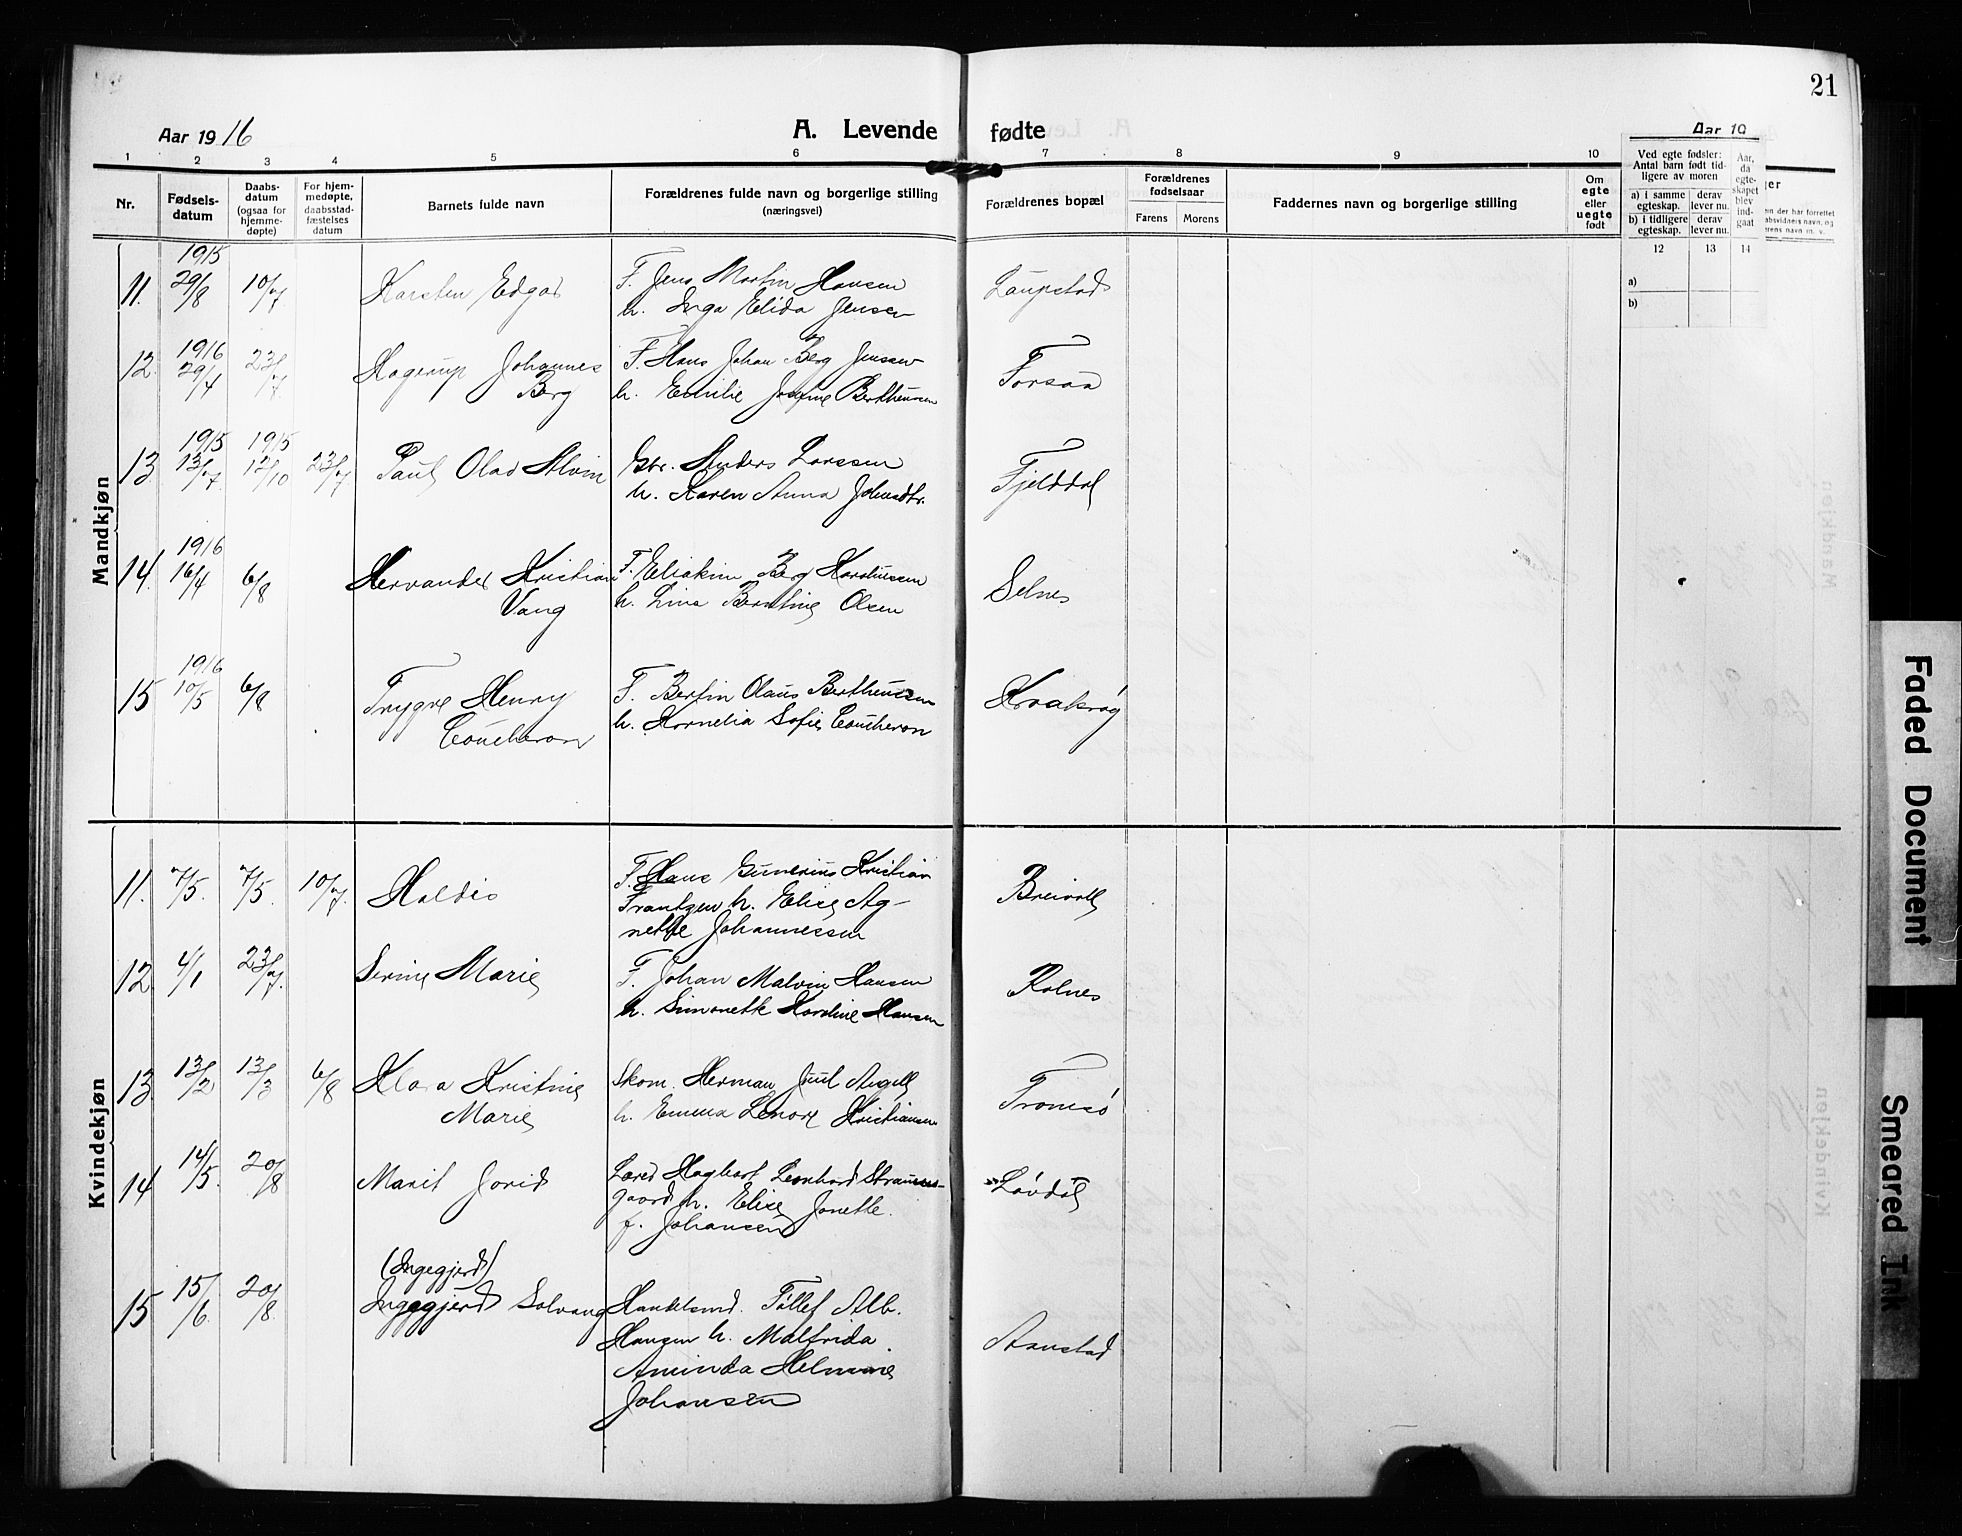 21
Aar 1916
A. Levende fødte
Aar 19
1 2 3 4 5 6 7 8 9 10
Nr.
Fødsels-
datum
Daabs-
datum
(ogsaa for
hjemme-
døpte)
For hjem-
medøpte,
daabsstad-
fæstelses
datum
Barnets fulde navn
Forældrenes fulde navn og borgerlige stilling
(næringsvei)
Forældrenes bopæl
Forældrenes
fødselsaar
Farens
Morens
Faddernes navn og borgerlige stilling
Om
egte
eller
uegte
født
Ved egte fødsler:
Antal barn født tid-
ligere av moren
a) i samme
egteskap.
derav
lever nu.
b) i tidligere
egteskap.
derav
lever nu.
Aar,
da
egte-
skapet
blev
ind-
gaat
12 13 14
a)
b)
Mandkjøn
1915
11. 29/8 10/7 Karsten Edgar F. Jens Martin Hansen Laupstad
h. Inga Elida Jensen
1916
12. 29/4 23/7 Hagerup Johannes F. Hans Johan Berg Jenssen Forsaa
Berg h. Emilie Josefine Bertheussen
1915 1915
13 13/7 12/10 23/7 Paul Olav Alvin Gbr. Anders Larssen Fjelddal
h. Karen Anna Johnsdtr.
1916
14. 16/4 6/8 Hervander Kristian F. Eliakim Berg Hardusen Selnes
Vang h. Lina Berntine Olsen
1916
15 10/5 6/8 Trygve Henry F. Bertin Olaus Bertheussen Kraakrøg
Coucheron h. Kornelia Sofie Coucheron
Kvindekjøn
11. 7/5. 7/5. 10/7. Haldis F. Hans Gunerius Kristian Breivoll
Frantzen h. Elise Ag-
nette Johannessen
12 4/1 23/7. Serine Marie F. Johan Malvin Hansen Rolnes
h. Simonette Hardine Hansen
13 13/2 13/3 6/8 Klara Kristine Skom. Herman Juul Angell Tromsø
Marie h. Emma Lenore Kristiansen
14 14/5. 20/8 Marit Jorid Lærer Hagbart Leonhard Straums- Løvdal
gaard h. Elise Jonette
f. Johansen
(Ingegjerd)
15 15/6. 20/8 Ingegjerd Solvang Handelsmd. Tollef Alb. Aanstad
Hansen h. Malfrida
Aminda Helmine
Johansen
Faded Document
Smeared Ink